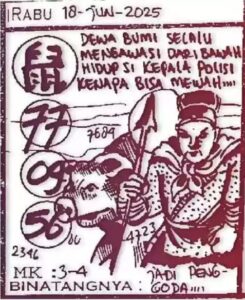 RABU 18-JUN-2025
鼠
DEWA BUMI SELALU
MENGAWASI DARI BAWAH
HIDUP SI KEPALA POLISI
KENAPA BISA MEWAH....
77
7684
09
56
06
4723
2346
MK : 3-4
BINATANGNYA :
JADI PENG-
GODA....